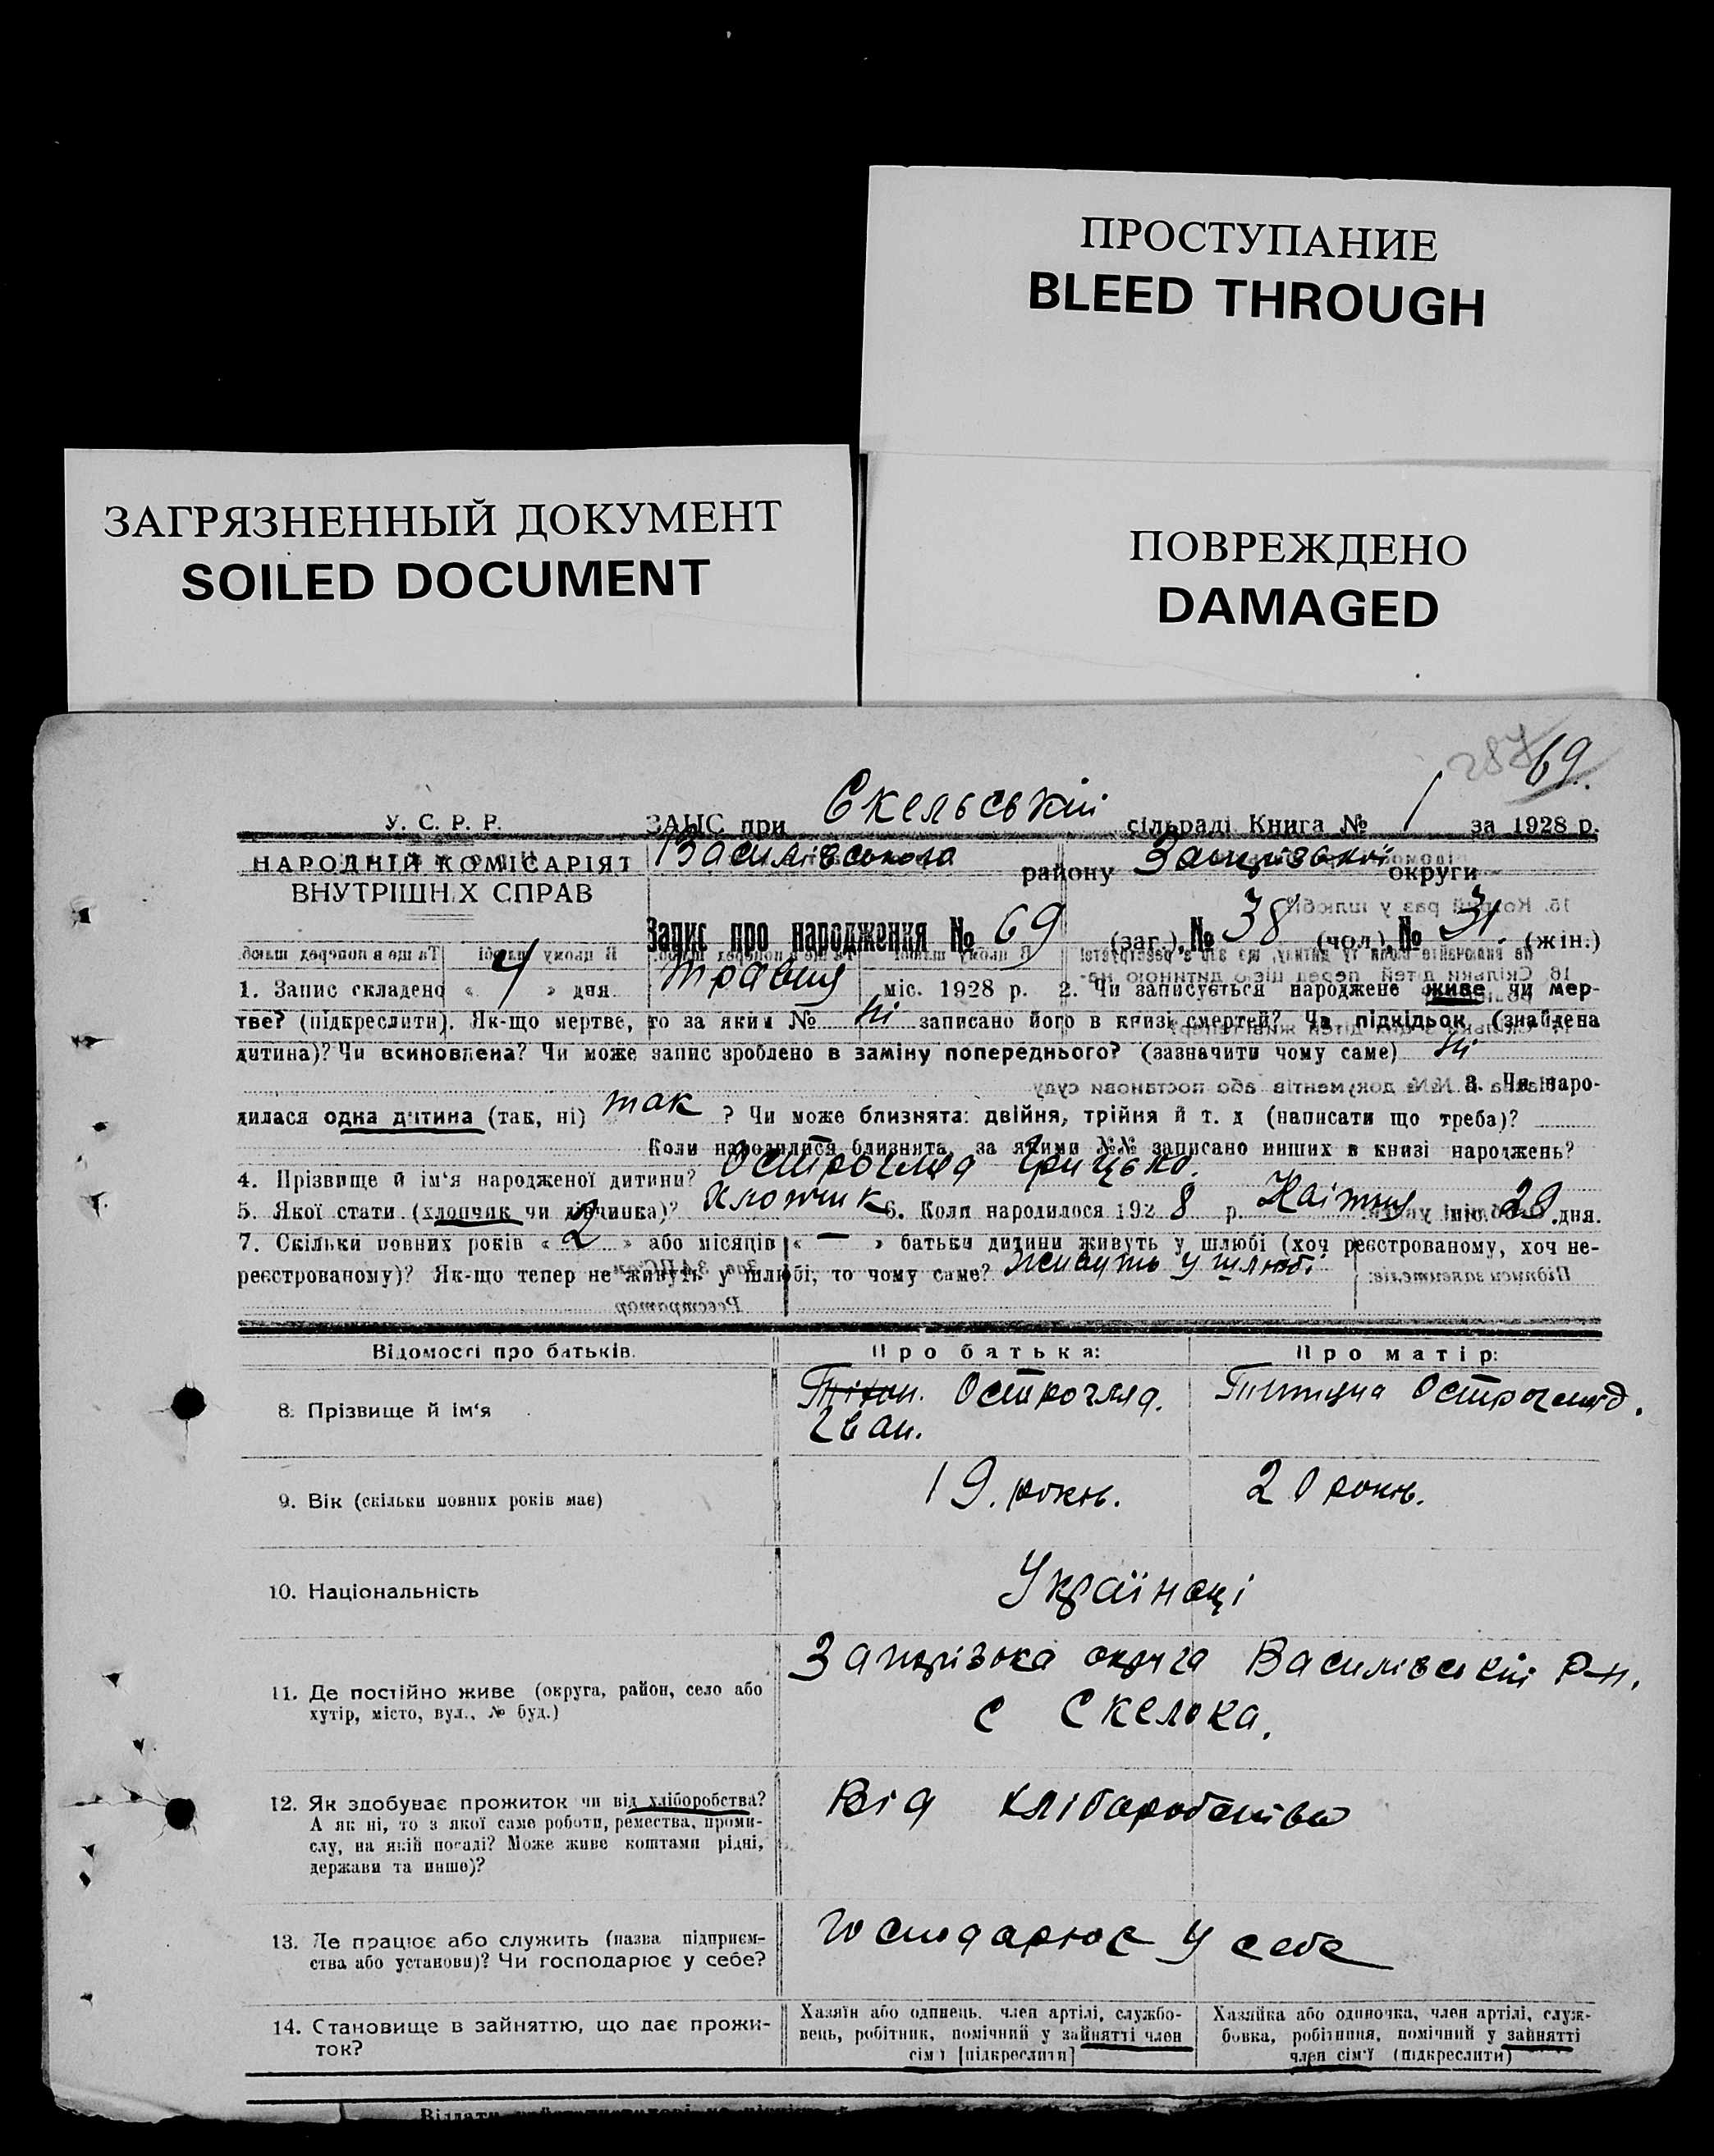 ПРОСТУПАНИЕ
BLEED THROUGH
ЗАГРЯЗНЕННЫЙ ДОКУМЕНТ
SOILED DOCUMENT
ПОВРЕЖДЕНО
DAMAGED
69.
У. С. Р. Р.
НАРОДНІЙ КОМІСАРІЯТ
ВНУТРІШНІХ СПРАВ
ЗАГС при Скельській сільраді Книга № 1 за 1928 р.
Василівського району Запорізької округи
Запис про народження № 69 (заг.), № 38 (чол.), № 31. (жін.)
1. Запис складено « 4 » дня травня міс. 1928 р. 2. Чи записується народжене живе чи мер-
тве? (підкреслити). Як-що мертве, то за яким № ні записано його в книзі смертей? Чи підкідьок (знайдена
дитина)? Чи всиновлена? Чи може запис зроблено в заміну попереднього? (зазначити чому саме) ні
3. Чи наро-
дилася одна дитина (так, ні) так ? Чи може близнята: двійня, трійня й т. д (написати що треба)?
Коли народилися близнята, за якими №№ записано инших в книзі народжень?
4. Прізвище й ім'я народженої дитини? Остrогляд Грицько.
5. Якої стати (хлопчик чи дівчинка)? хлопчик 6. Коли народилося 192 8 р. Квітня міс. 29 дня.
7. Скільки повних років « 2 » або місяців « — » батьки дитини живуть у шлюбі (хоч реєстрованому, хоч не-
реєстрованому)? Як-що тепер не живуть у шлюбі, то чому саме? Живуть у шлюбі
Відомості про батьків.
Про батька:
Про матір:
8. Прізвище й ім'я
Остrогляд.
Іван.
Остrогляд.
9. Вік (скільки повних років має)
19. років.
20 років.
10. Національність
Українці
11. Де постійно живе (округа, район, село або
хутір, місто, вул., № буд.)
Запорізька округа Василівський р-н.
с Скелька.
12. Як здобуває прожиток чи від хліборобства?
А як ні, то з якої саме роботи, ремества, проми-
слу, на якій посаді? Може живе коштами рідні,
держави та инше)?
Від хліборобства
13. Де працює або служить (назва підприєм-
ства або установи)? Чи господарює у себе?
Господарює у себе
14. Становище в зайняттю, що дає прожи-
ток?
Хазяїн або одинець, член артілі, службо-
вець, робітник, помічний у зайнятті член
сім'ї [підкреслити]
Хазяйка або одиночка, член артілі, служ-
бовка, робітниця, помічний у зайнятті
член сім'ї (підкреслити)